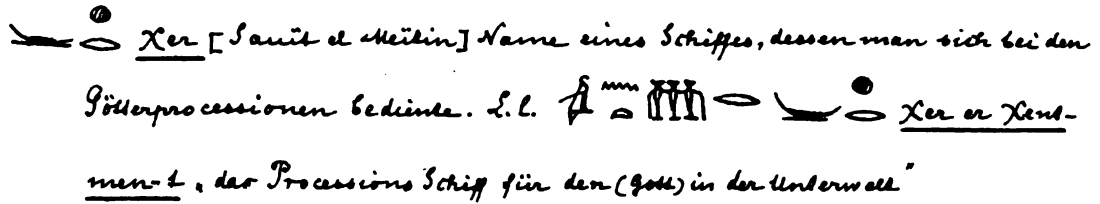 Xer [Sauït el Meïtin] Name eines Schiffes, dessen man sich bei den
Götterprocessionen bediente. L.l. Xer er Xent-
men-t „das Processions Schiff für den (Gott) in der Unterwelt"